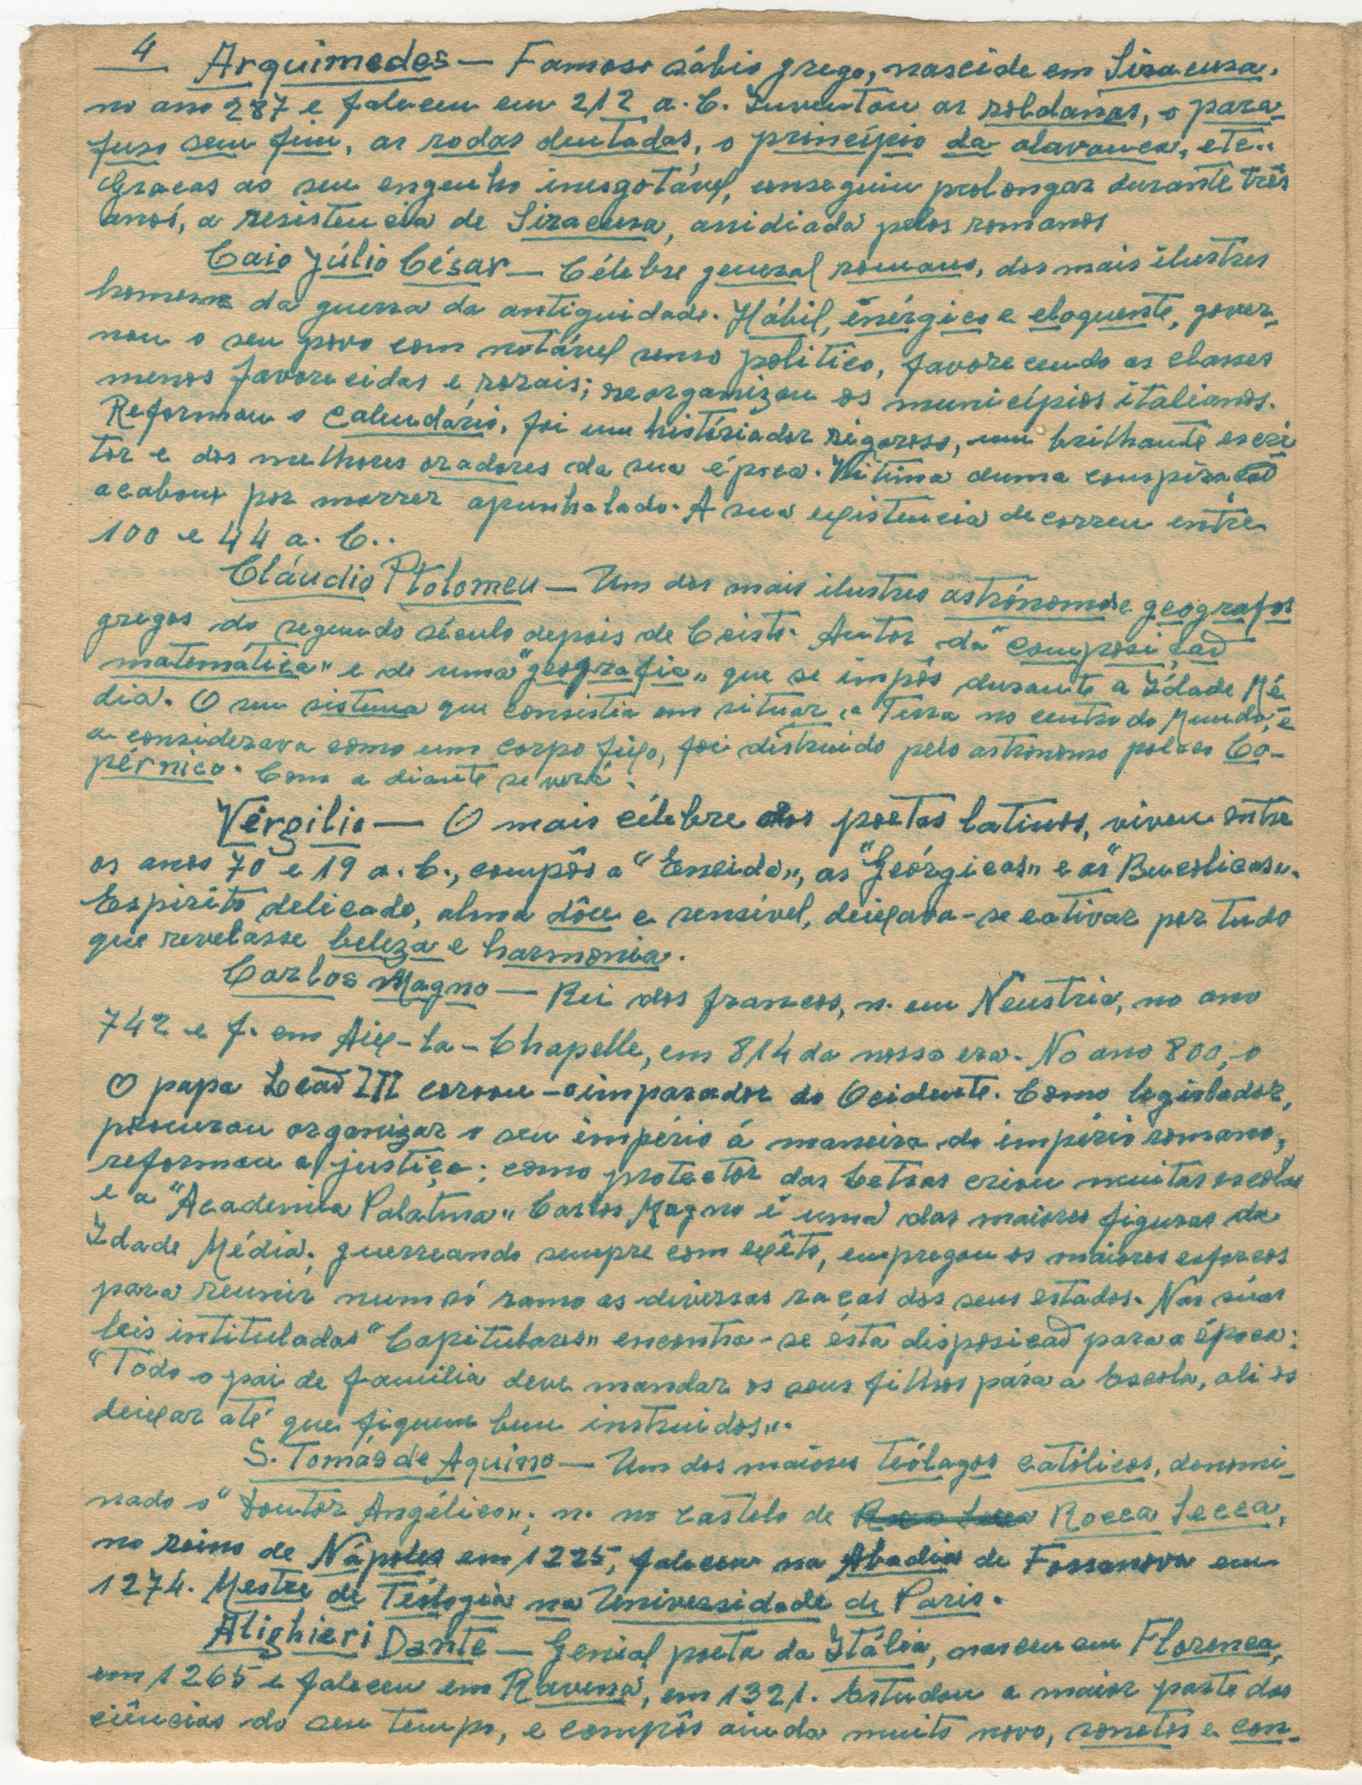 4 Arquimedes — Famoso sábio grego, nascido em Siracusa,
no ano 287 e faleceu em 212 a. C. Inventou as roldanas, o para-
fuso sem fim, as rodas dentadas, o princípio da alavanca, etc..
Graças ao seu engenho inesgotável, conseguiu prolongar durante três
anos, a resistencia de Siracusa, assidiada pelos romanos
Caio Júlio César — Célebre general romano, dos mais ilustres
homens da guerra da antiguidade. Hábil, énérgico e eloquente, gover-
nou o seu povo com notável senso politico, favorecendo as classes
menos favorecidas e rorais; reorganizou os municípios italianos.
Reformou o Calendário, foi um históriador rigoroso, um brilhante escri
tor e dos melhores oradores da sua época. Vitima duma conspiração
acabou por morrer apunhalado. A sua existencia decorreu entre
100 e 44 a. C..
Cláudio Ptolomeu — Um dos mais ilustres astrónomos e geografos
gregos do segundo século depois de Cristo. Autor da "Composição
matemática" e de uma "geografia" que se impôs durante a Idade Mé-
dia. O seu sistema que consistia em situar a Terra no centro do Mundo, e
a considerava como um corpo fixo, foi distruido pelo astronomo polaco Co-
pérnico. Como a diante se verá.
Vérgilio — O mais célebre dos poetas latinos, viveu entre
os anos 70 e 19 a. C., compôs a "Eneida", as "Geórgicas" e as "Bucolicas".
Espirito delicado, alma dôce e sensível, deixava-se cativar por tudo
que revelasse beleza e harmonia.
Carlos Magno — Rei dos francos, n. em Neustria, no ano
742 e f. em Aix-la-Chapelle, em 814 da nossa era. No ano 800, o
O papa Leão III coroou-o imparador do Ocidente. Como legislador,
procurou organizar o seu império á maneira do império romano,
reformou a justiça; como protector das letras criou muitas escolas
e a "Academia Palatina" Carlos Magno é uma das maiores figuras da
Idade Média; guerreando sempre com exêto, empregou os maiores esforços
para reunir num só ramo as diversas raças dos seus estados. Nas suas
leis intituladas "Capitulares" encontra-se ésta disposição para a época:
"Todo o pai de familia deve mandar os seus filhos pára a Escola, ali os
deixar até que fiquem bem instruidos".
S. Tomás de Aquino — Um dos maiores Teólogos católicos, denomi-
nado o "Doutor Angélico"; n. no castelo de Rocca Secca,
no reino de Nápoles em 1225, faleceu na Abadia de Fossanova em
1274. Mestre de Teólogia na Universidade de Paris.
Alighieri Dante — Genial poeta da Itália, nasceu em Florença,
em 1265 e faleceu em Ravena, em 1321. Estudou a maior parte das
ciências do seu tempo, e compôs ainda muito novo, sonetos e can-